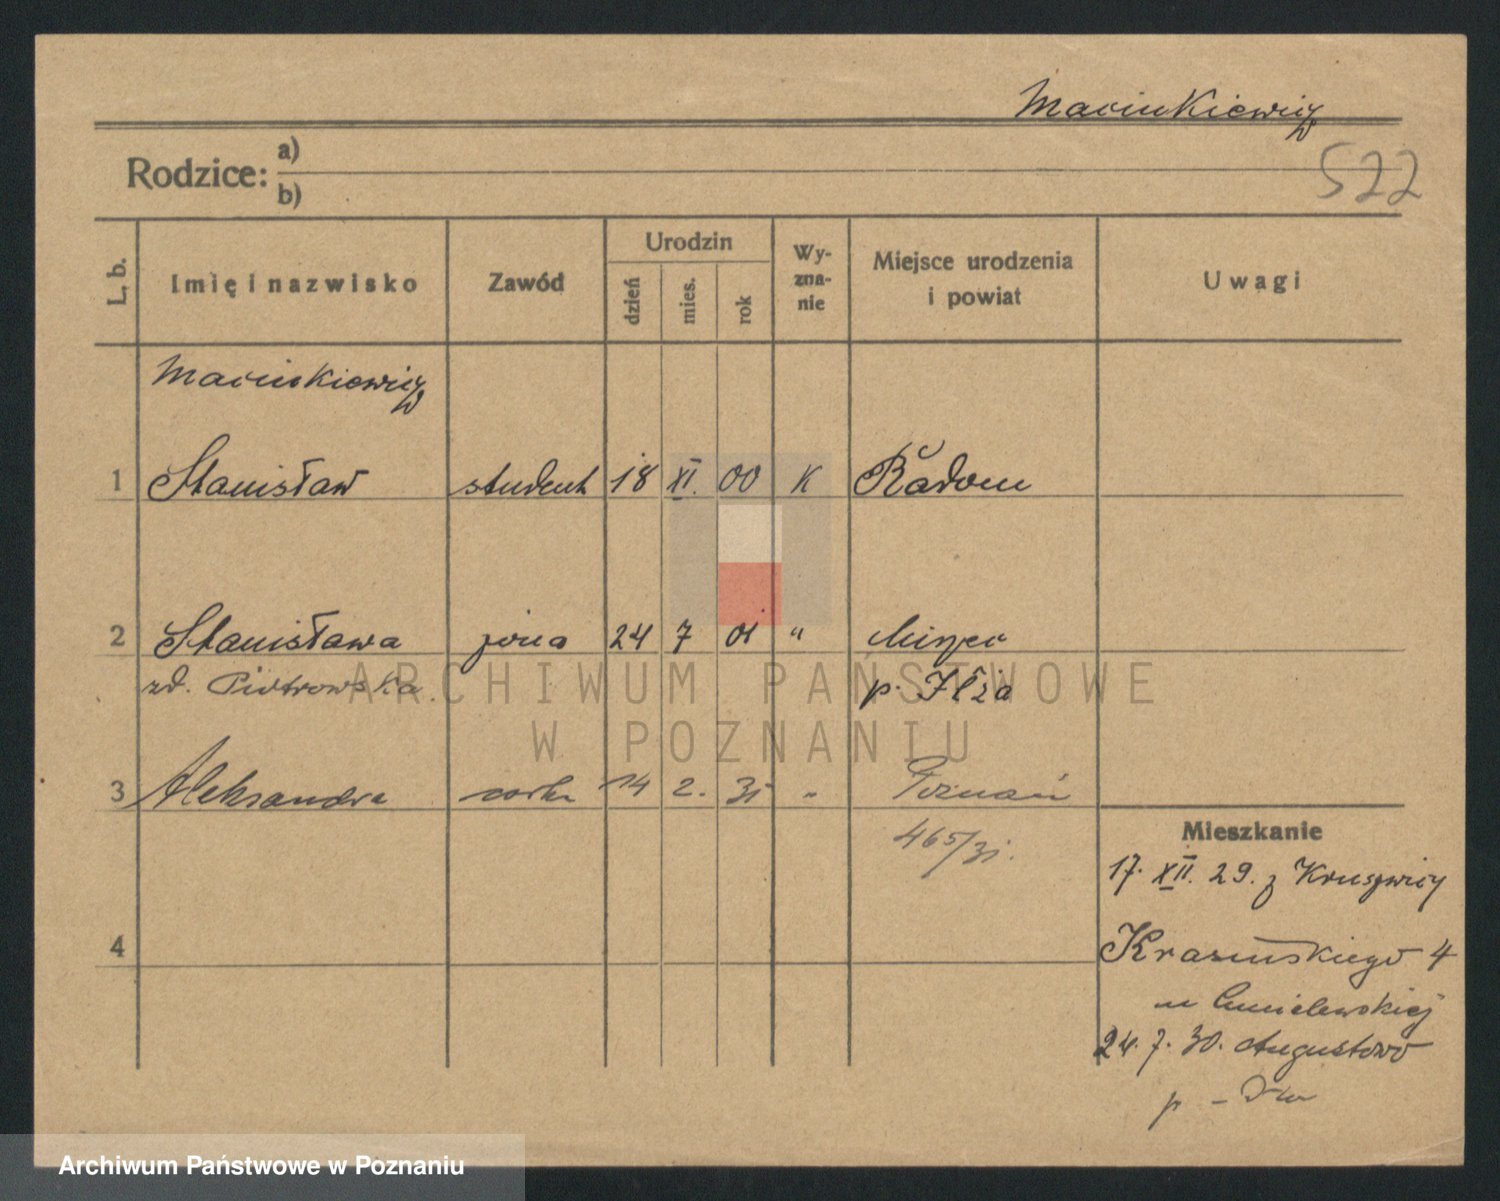 Macinkiewicz
522
Rodzice: a)
b)
L. b. Imię i nazwisko Zawód Urodzin dzień mies. rok Wy-zna-nie Miejsce urodzenia i powiat Uwagi
Macinkiewicz
1 Stanisław student 18 XI. 00 K Radom
2 Stanisława żona 24 7 01 "
zd. Piotrowska p. Iłża
3 Aleksandra córka 14 2. 31 " Poznań
465/31.
Mieszkanie
17. XII. 29. z Kruszwicy
4
Krasińskiego 4
u Chmielewskiej
24. 7. 30. Augustowo
ARCHIWUM PAŃSTWOWE
W POZNANIU
Archiwum Państwowe w Poznaniu